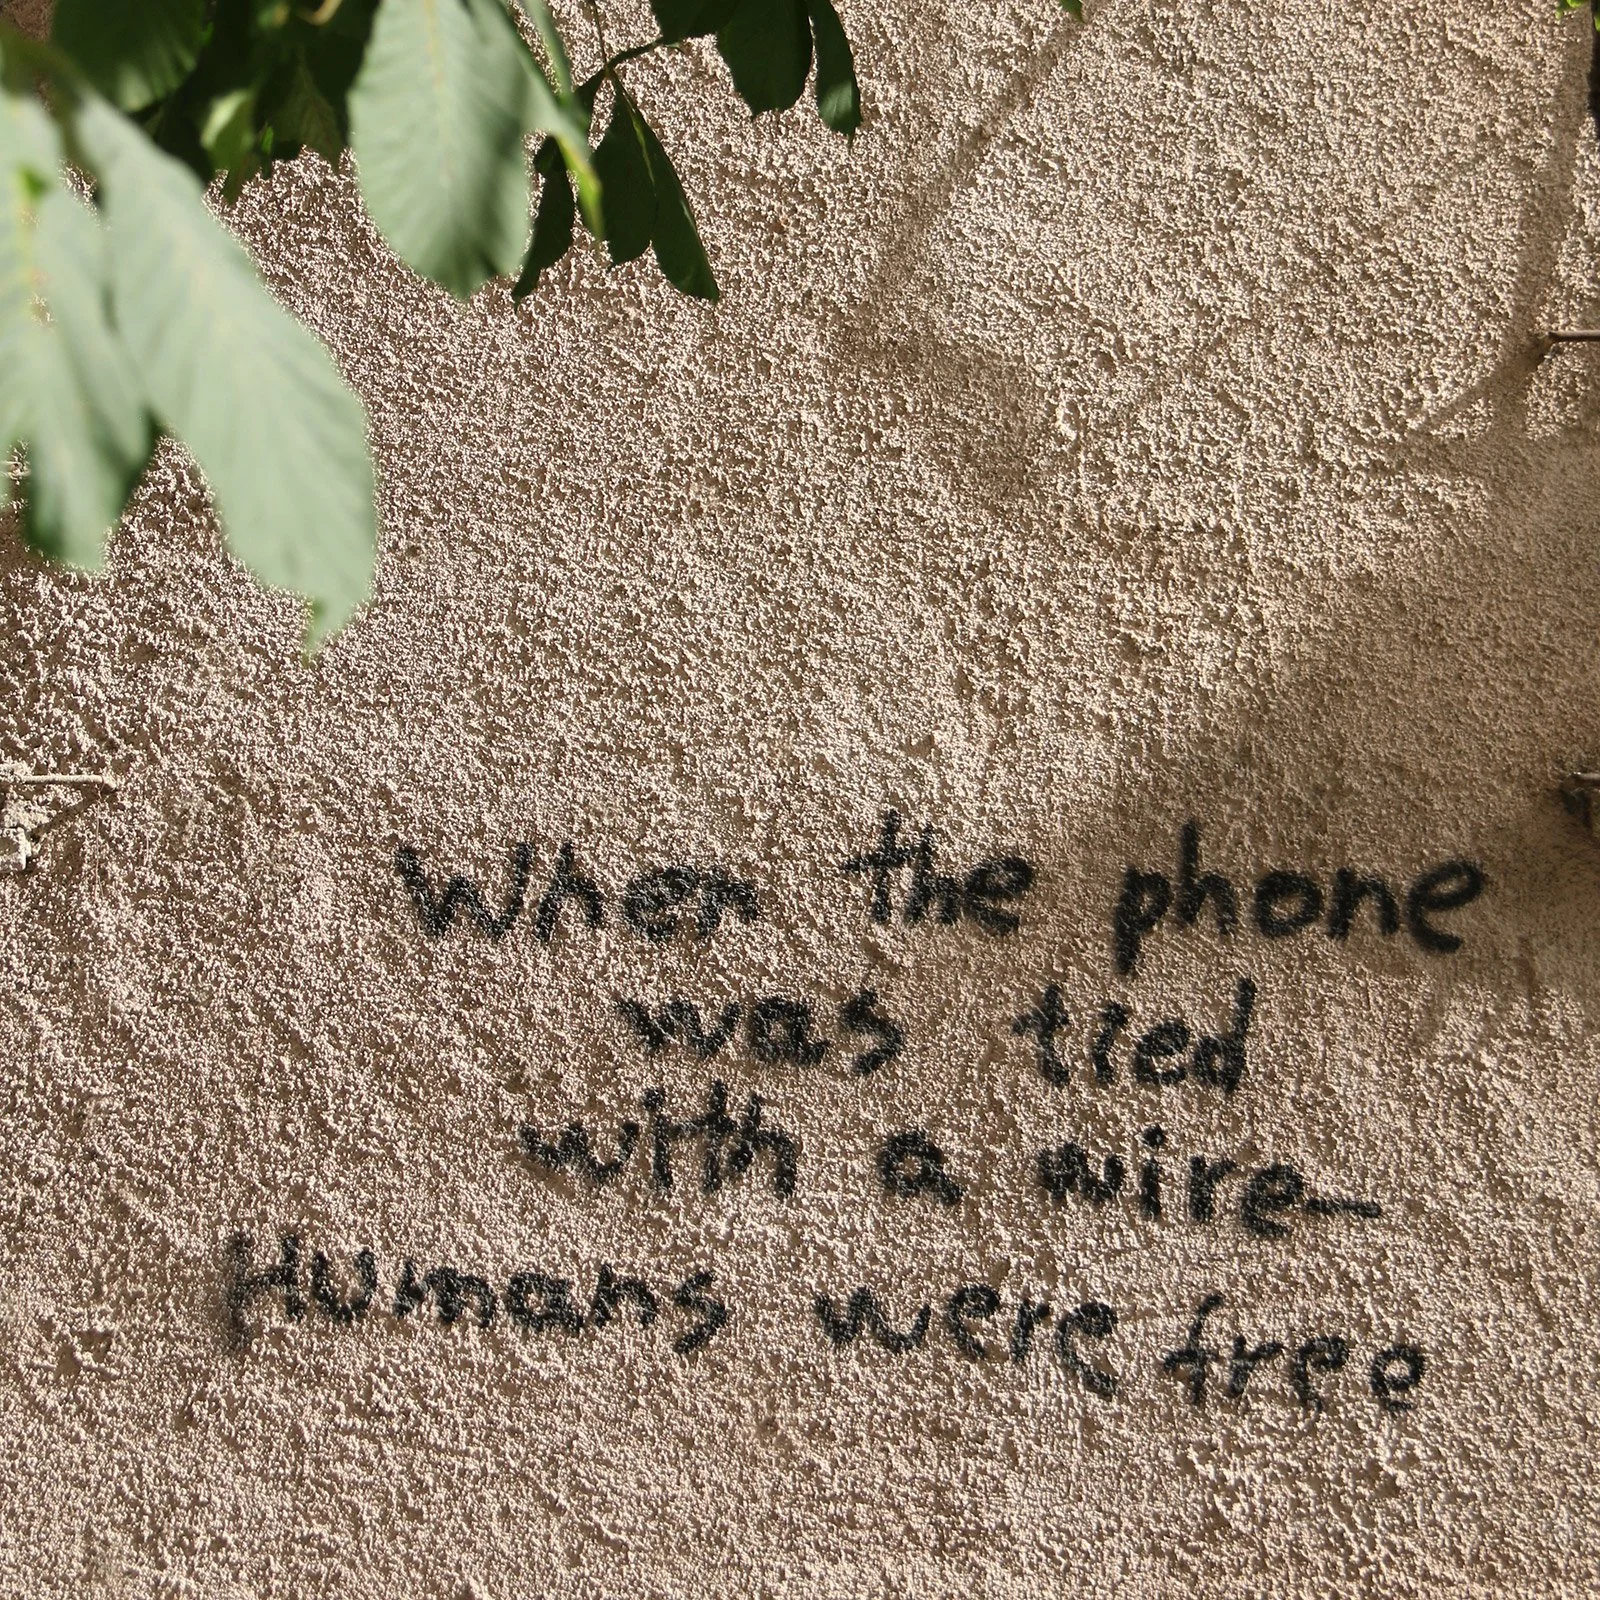 When the phone
was tied
with a wire-
Humans were free